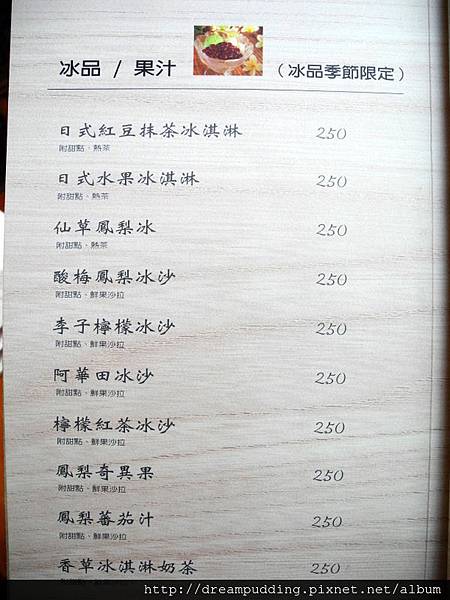 冰品 / 果汁 (冰品季節限定)
日式紅豆抹茶冰淇淋 250
附甜點、熱茶
日式水果冰淇淋 250
附甜點、熱茶
仙草鳳梨冰 250
附甜點、熱茶
酸梅鳳梨冰沙 250
附甜點、鮮果沙拉
李子檸檬冰沙 250
附甜點、鮮果沙拉
阿華田冰沙 250
附甜點、鮮果沙拉
檸檬紅茶冰沙 250
附甜點、鮮果沙拉
鳳梨奇異果 250
附甜點、鮮果沙拉
鳳梨蕃茄汁 250
附甜點、鮮果沙拉
香草冰淇淋奶茶 250
附甜點、鮮果沙拉
http://dreampudding.pixnet.net/album